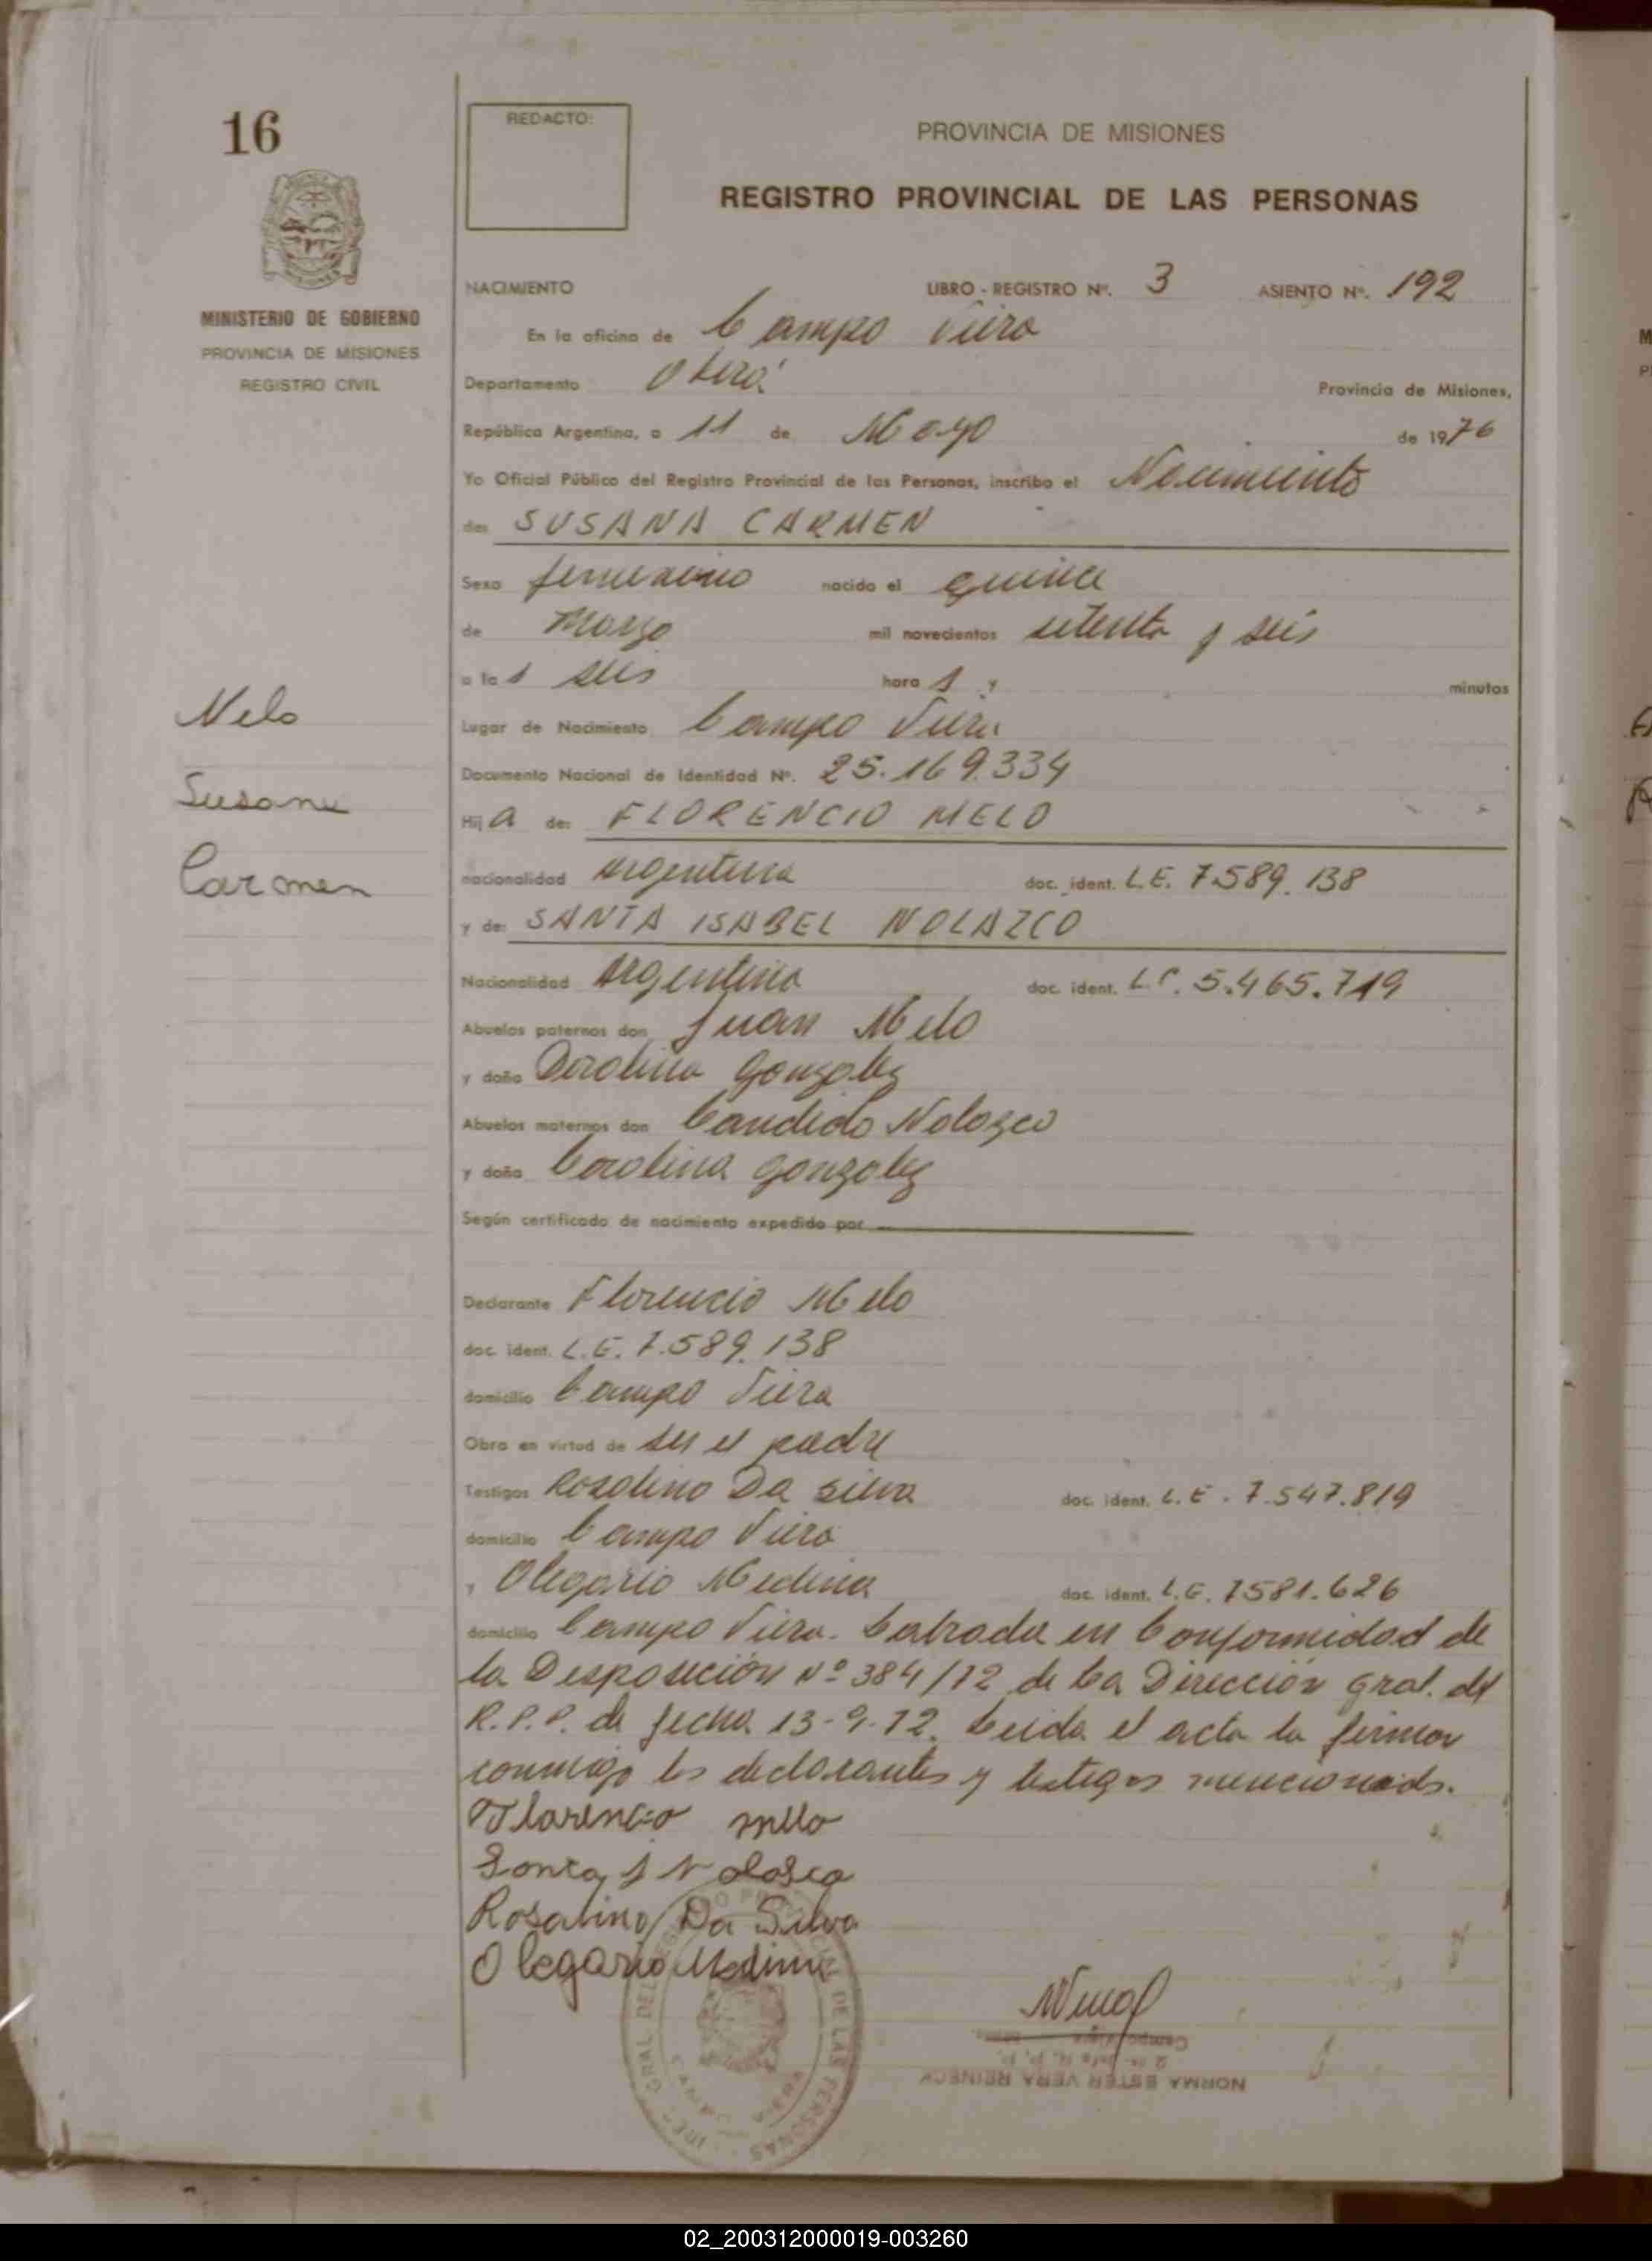 16
REDACTO:
PROVINCIA DE MISIONES
REGISTRO PROVINCIAL DE LAS PERSONAS
MINISTERIO DE GOBIERNO
PROVINCIA DE MISIONES
REGISTRO CIVIL
NACIMIENTO LIBRO - REGISTRO Nº. 3 ASIENTO Nº. 192
En la oficina de Campo Viera
Departamento Oberá Provincia de Misiones,
República Argentina, a 11 de Mayo de 1976
Yo Oficial Público del Registro Provincial de las Personas, inscribo el Nacimiento
de: SUSANA CARMEN
Sexo femenino nacido el quince
de Marzo mil novecientos setenta y seis
a las seis horas y minutos
Lugar de Nacimiento Campo Viera
Documento Nacional de Identidad Nº. 25.169.334
Hija de: FLORENCIO MELO
nacionalidad argentina doc. ident. L.E. 7.589.138
y de: SANTA ISABEL NOLAZCO
Nacionalidad argentina doc. ident. L.C. 5.465.719
Abuelos paternos don Juan Melo
y doña Gonzalez
Abuelos maternos don Candido Nolazco
y doña Carolina Gonzalez
Según certificado de nacimiento expedido por
Melo
Susana
Carmen
Declarante Florencio Melo
doc. ident. L.E. 7.589.138
domicilio Campo Viera
Obra en virtud de ser el padre
Testigos Rosalino Da Silva doc. ident. L.E. 7.547.819
domicilio Campo Viera
y Olegario Medina doc. ident. L.E. 7581.626
domicilio Campo Viera. Labrada en Conformidad de
la Disposición Nº 384/72 de la Dirección Gral. del
R.P.P. de fecha 13-9-72. Leida el acta la firman
conmigo los declarantes y testigos mencionads.
Florencio mello
Santa I Nolasco
Rosalino Da Silva
Olegario Medina
NORMA ESTER VERA REINECK
02_200312000019-003260